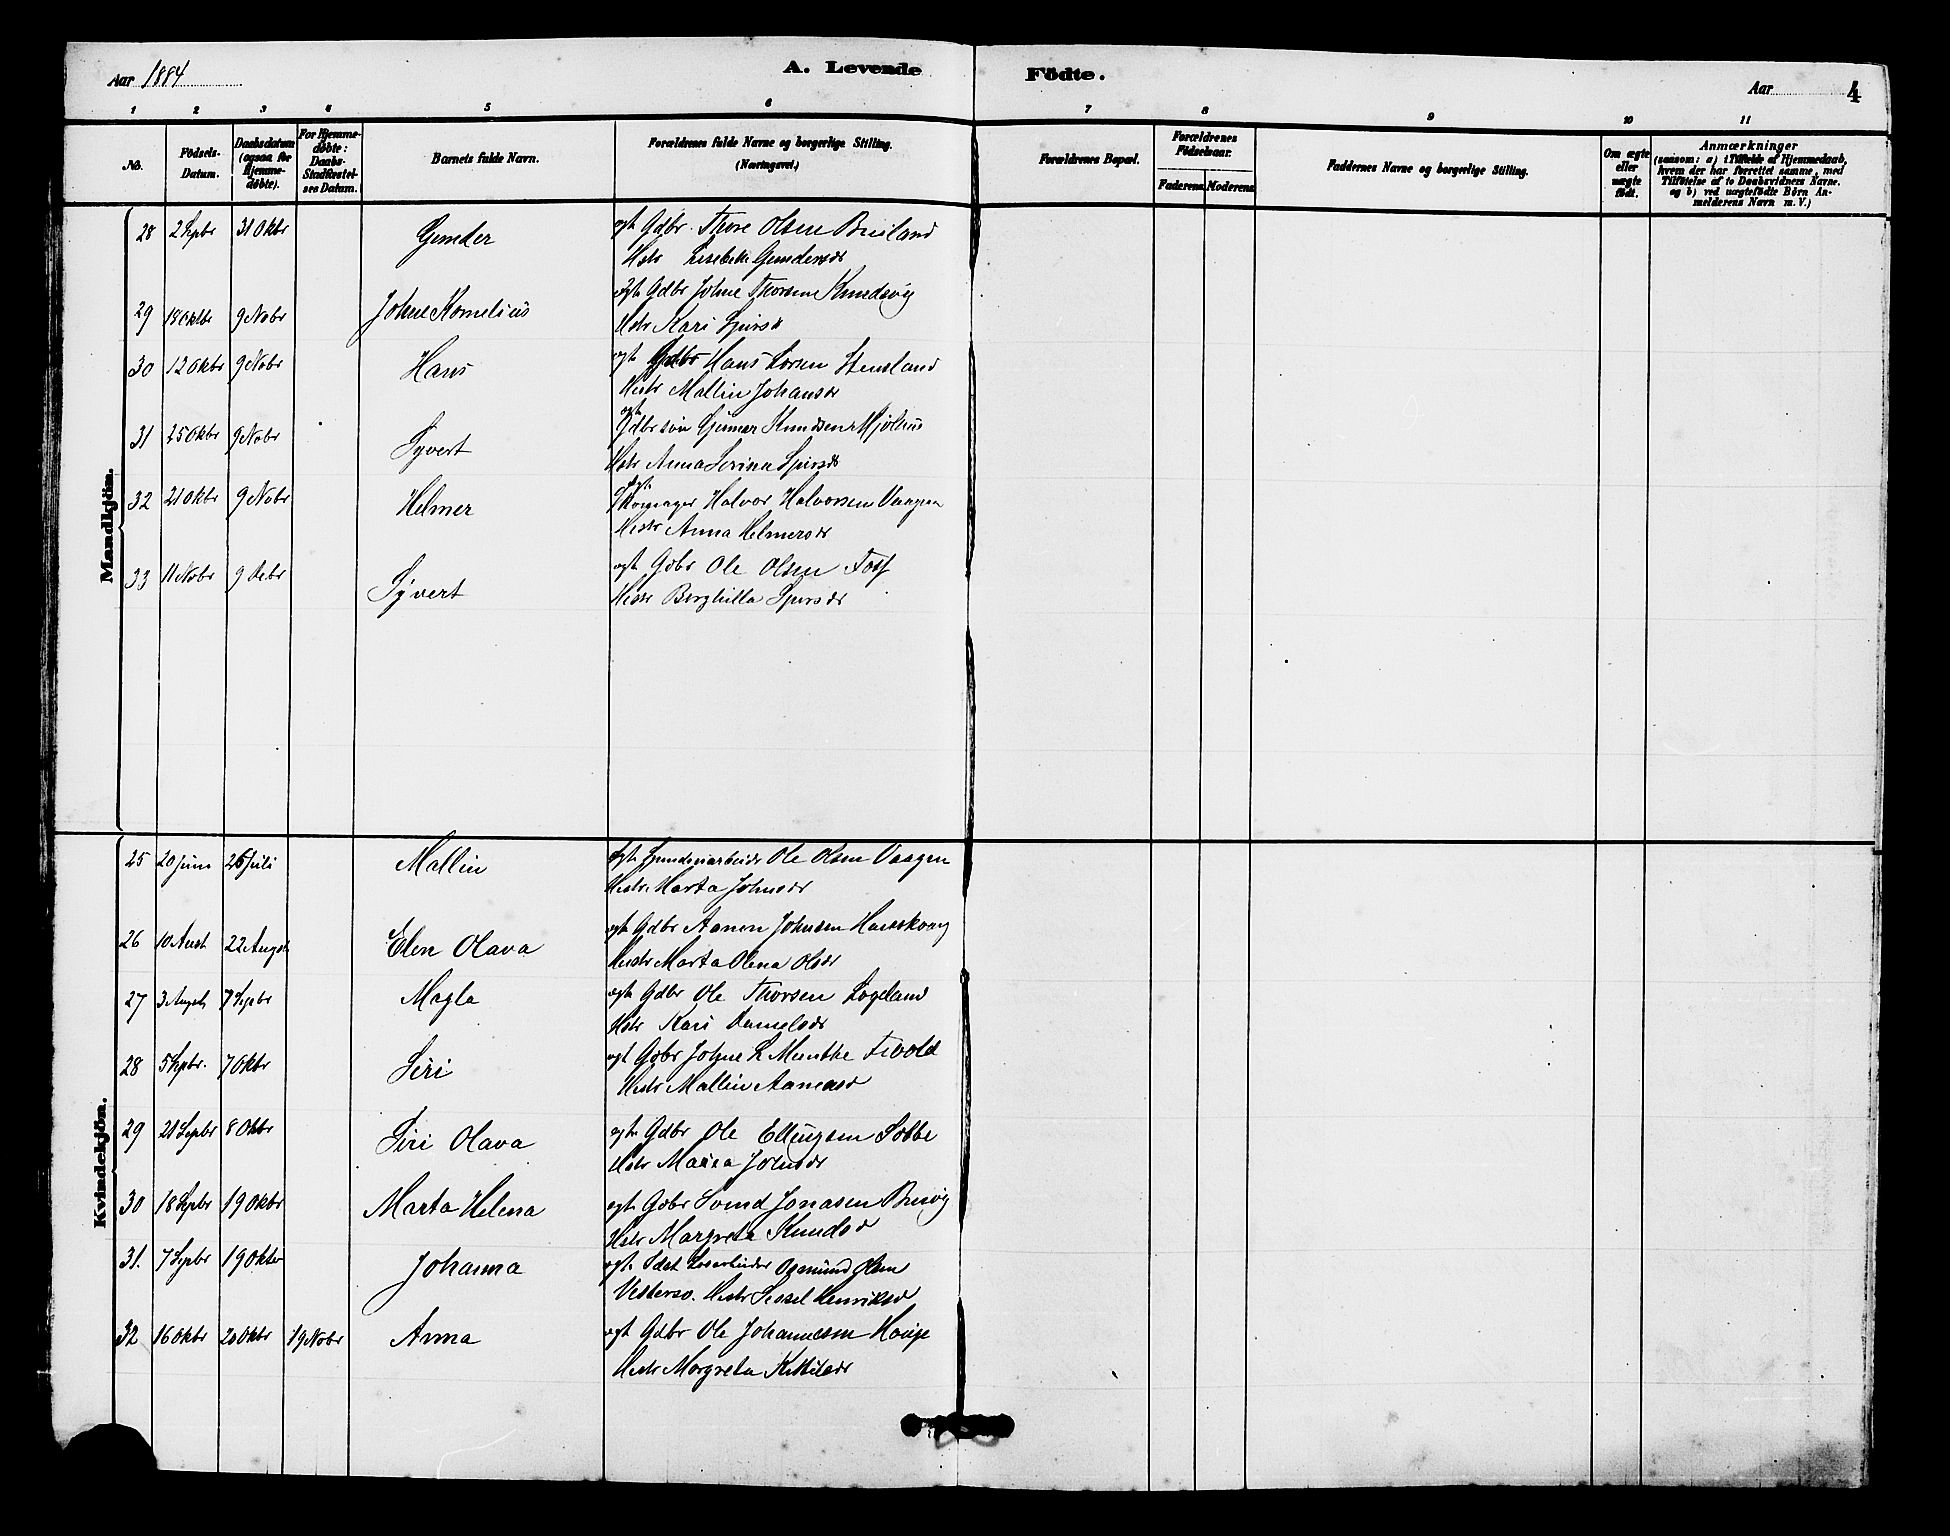 Aar 1884
A. Levende Födte.
Aar 4
1 2 3 4 5 6 7 8 9 10 11
No. Födsels-Datum. Daabsdatum (ogsaa for Hjemme-döbte). For Hjemme-döbte: Daabs-Stadfæstel-ses Datum. Barnets fulde Navn. Forældrenes fulde Navne og borgerlige Stilling. (Næringsvei.) Forældrenes Bopæl. Forældrenes Födselsaar. Faderens Moderens Faddernes Navne og borgerlige Stilling. Om ægte eller uægte födt. Anmærkninger (saasom: a) i Tilfælde af Hjemmedaab, hvem der har forrettet samme, med Tilföielse af to Daabsvidners Navne, og b) ved uægtefödte Börn An-melderens Navn m. V.)
Mandkjön.
28 2 Sepbr 31 Oktbr Gunder ægt. Gdbr. Thore Olsen Builand
Hstr Lisebeth Gundersdr
29 18 Oktbr 9 Nobr Johne Kornelius ægt Gdbr Johne Thorsen Knudsvig
Hstr Kari Syversdr
30 12 Oktbr 9 Nobr Hans ægt Gdbr Hans Larsen Stensland
Hustr Mallin Johansdr
31 25 Oktbr 9 Nobr Syvert ægt Gdbr søn Gunnar Knudsen Mjølhus
Hstr Anna Serina Syversdr
32 21 Oktbr 9 Nobr Helmer ægt Skomager Halvor Halvorsen Vaagen
Hustr Anna Helmersdr
33 11 Nobr 9 Debr Syvert ægt Gdbr Ole Olsen Foss
Hustr Berghilla Syversdr
Kvindekjön.
25 20 Juni 26 Juli Mallin ægt Ole Olsen Vaagen
Hustr. Marta Johnsdr
26 10 Aust 22 Augst Elen Olava ægt Gdbr Aanen Johnsen
Hustr Marta Olena Olsdr
27 3 Augst 7 Sepbr Magla ægt Gdbr Ole Thorsen Logeland
Hstr Kari Danielsdr
28 5 Sepbr. 7 Oktbr Siri ægt Gdbr Johne L Munthe Tivold
Hustr Mallin Aanensdr
29 21 Sepbr 8 Oktbr Siri Olava ægt Gdbr Ole Ellingsen Løbbe
Hstr Maria Johnsdr
30 18 Sepbr 19 Oktbr Marta Helena ægt Gdbr Svend Jonasen
Hstr Margreta Knudsdr
31. 7 Sepbr 19 Oktbr Johanna ægt Osmund Olsen
Hustr Sissel Henriksdr
32 16 Oktbr 20 Oktbr 19 Nobr Anna ægt Gdbr Ole Johannesen Houge
Hustr Margreta Kittilsdr